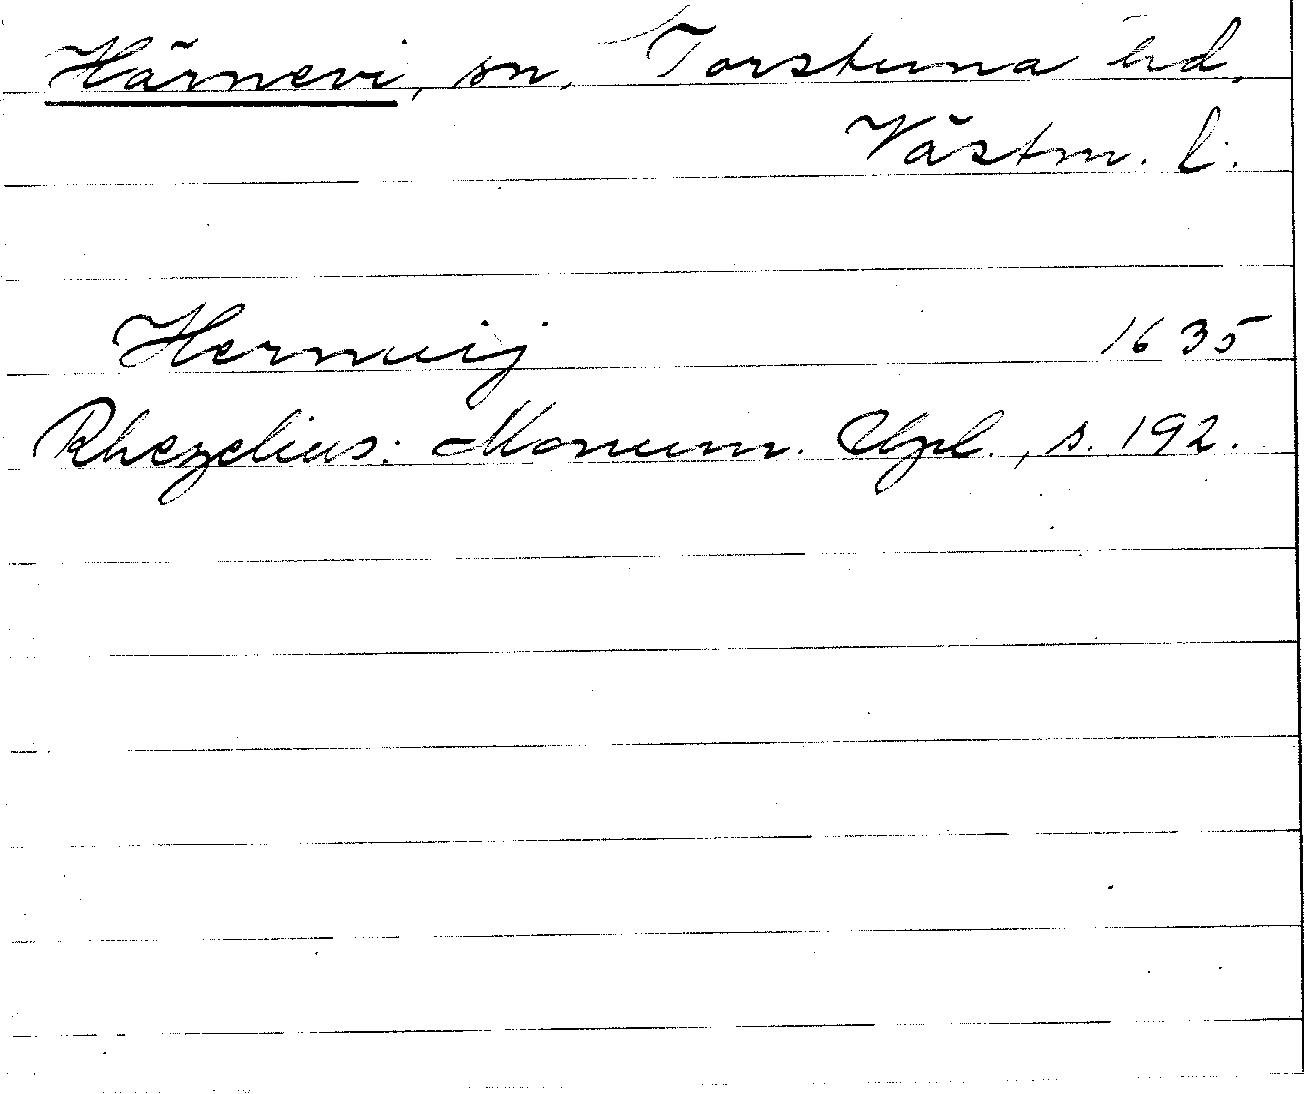 Härnevi, sn, Torstuna hd.
Västm. l.
Hernuij 1635
Rhezelius: Monum. Upl., s. 192.